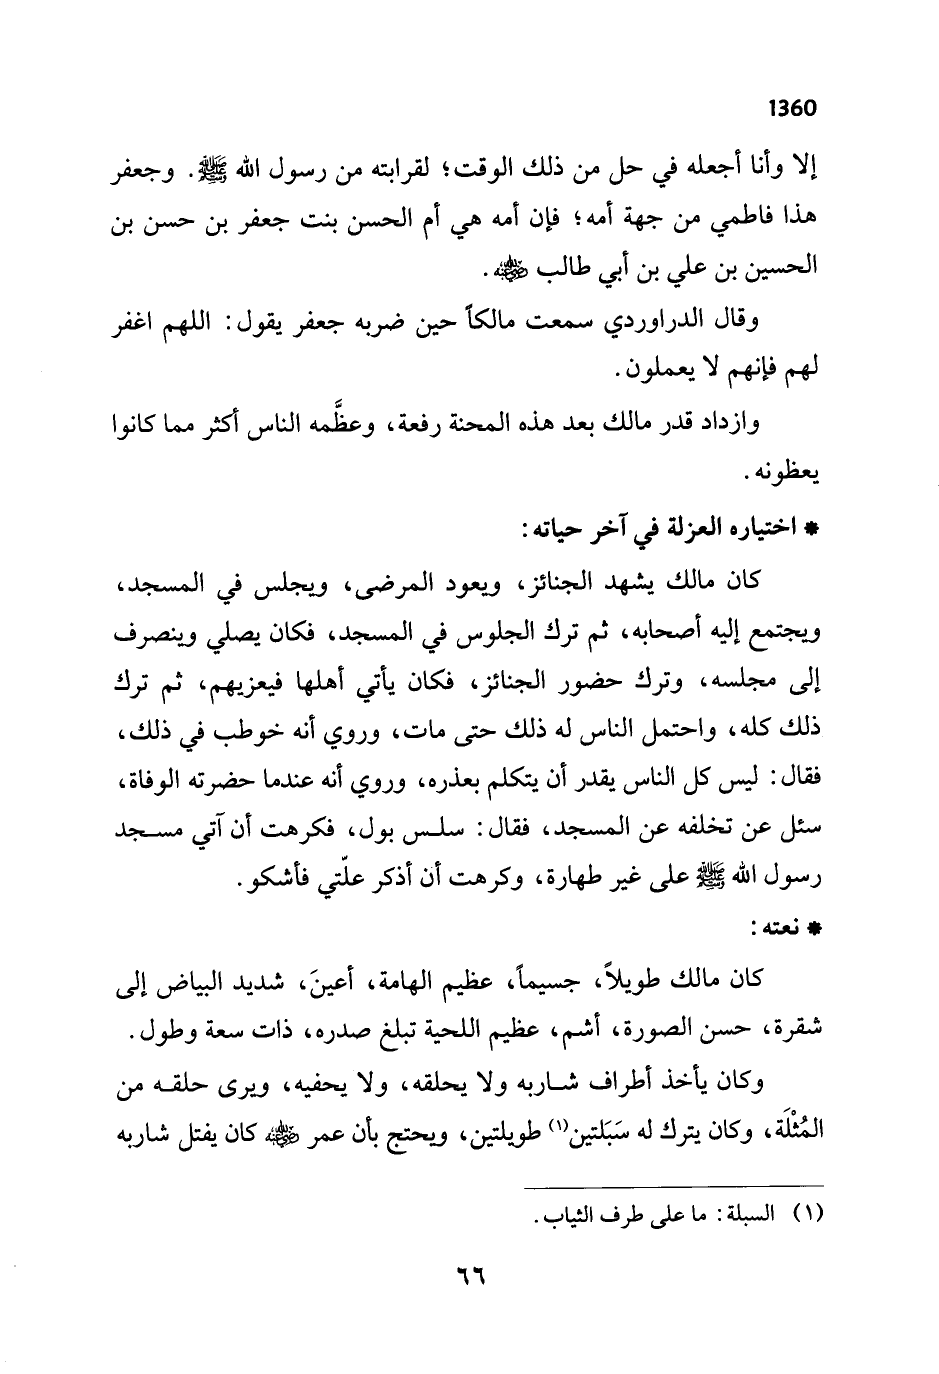 1360
إلا وأنا أجعله في حل من ذلك الوقت؛ لقرابته من رسول الله ﷺ. وجعفر
هذا فاطمي من جهة أمه؛ فإن أمه هي أم الحسن بنت جعفر بن حسن بن
الحسين بن علي بن أبي طالب رضي الله عنه.
وقال الدراوردي سمعت مالكاً حين ضربه جعفر يقول: اللهم اغفر
لهم فإنهم لا يعملون.
وازداد قدر مالك بعد هذه المحنة رفعة، وعظَّمه الناس أكثر مما كانوا
يعظونه.
* اختياره العزلة في آخر حياته:
كان مالك يشهد الجنائز، ويعود المرضى، ويجلس في المسجد،
ويجتمع إليه أصحابه، ثم ترك الجلوس في المسجد، فكان يصلي وينصرف
إلى مجلسه، وترك حضور الجنائز، فكان يأتي أهلها فيعزيهم، ثم ترك
ذلك كله، واحتمل الناس له ذلك حتى مات، وروي أنه خوطب في ذلك،
فقال: ليس كل الناس يقدر أن يتكلم بعذره، وروي أنه عندما حضرته الوفاة،
سئل عن تخلفه عن المسجد، فقال: سلس بول، فكرهت أن آتي مسجد
رسول الله ﷺ على غير طهارة، وكرهت أن أذكر علّتي فأشكو.
* نعته:
كان مالك طويلاً، جسيماً، عظيم الهامة، أعينَ، شديد البياض إلى
شقرة، حسن الصورة، أشم، عظيم اللحية تبلغ صدره، ذات سعة وطول.
وكان يأخذ أطراف شاربه ولا يحلقه، ولا يحفيه، ويرى حلقه من
المُثْلَة، وكان يترك له سَبَلتين(١) طويلتين، ويحتج بأن عمر رضي الله عنه كان يفتل شاربه
(١) السبلة: ما على طرف الثياب.
٦٦